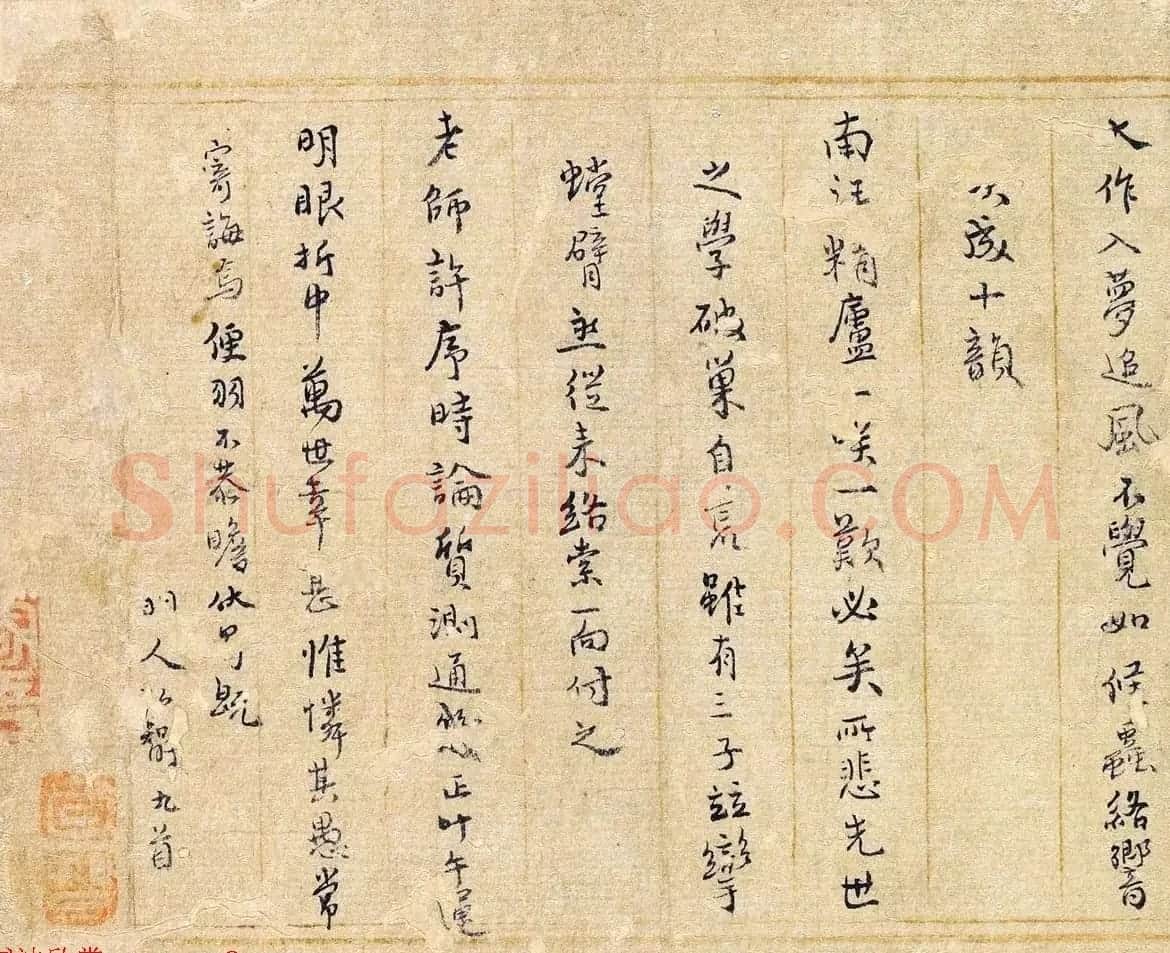 大作入夢追風不覺如候蟲絡響
次成十韻
南汪精廬一咲一歎必矣所悲先世
之學破巢自 雖有三子竝孿
螳臂 從未絡索一向付之
老師許序時論質測通 正叶午運
明眼折中萬世幸甚惟憐其愚常
寄誨焉便羽不恭瞻伏 既
 人 智九首
Shufaziliao.COM